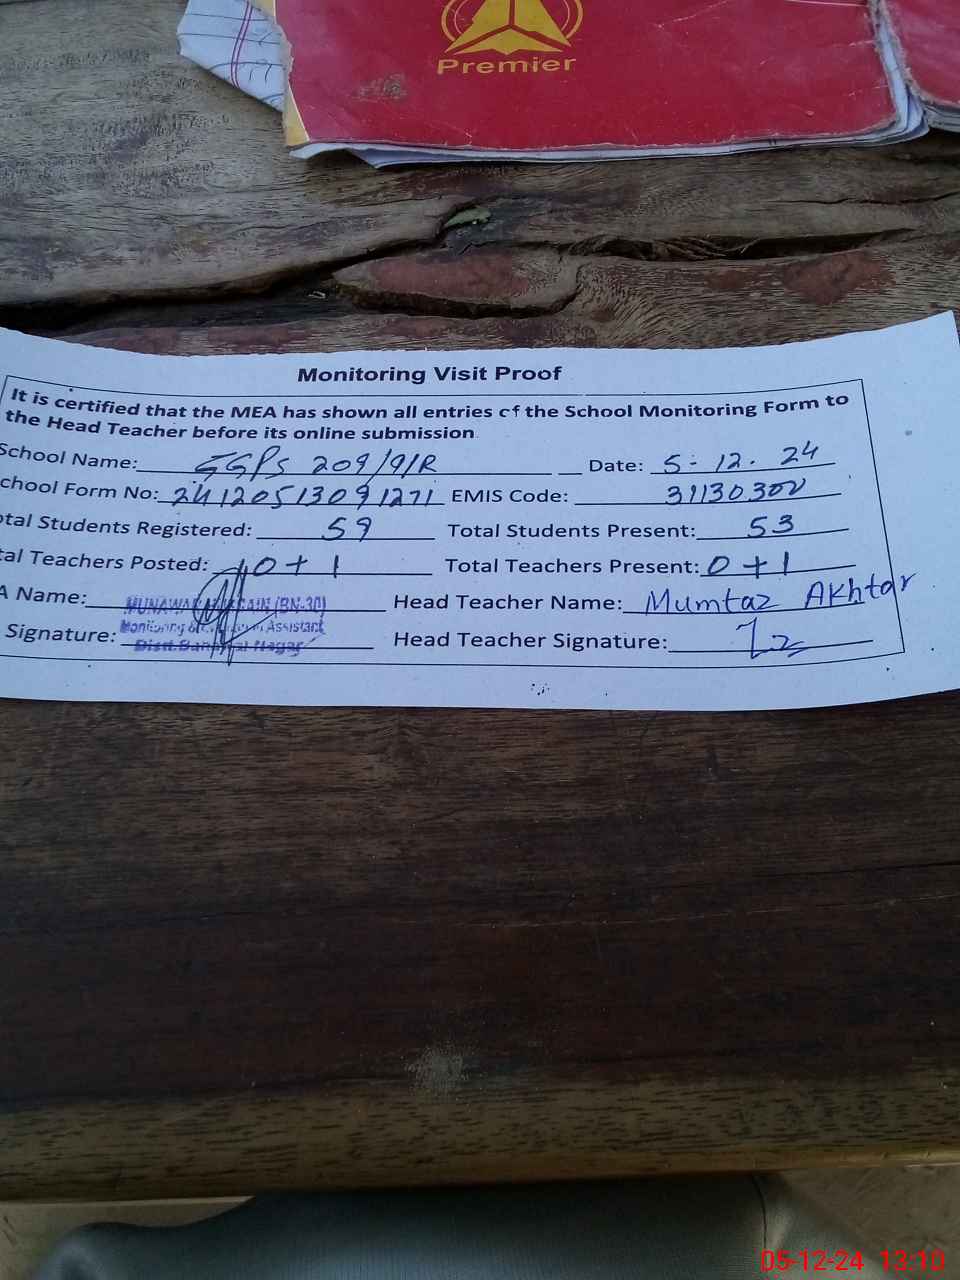 Premier
Monitoring Visit Proof
It is certified that the MEA has shown all entries of the School Monitoring Form to
the Head Teacher before its online submission
School Name: GGPS 209/9/R Date: 5-12.24
chool Form No: 24120513091271 EMIS Code: 31130300
otal Students Registered: 59 Total Students Present: 53
tal Teachers Posted: 0+1 Total Teachers Present: 0+1
A Name: MUNAWAR (BN-30) Head Teacher Name: Mumtaz Akhtar
Monitoring & Assistant
Signature: Head Teacher Signature:
Distt. Nagar
05-12-24 13:10